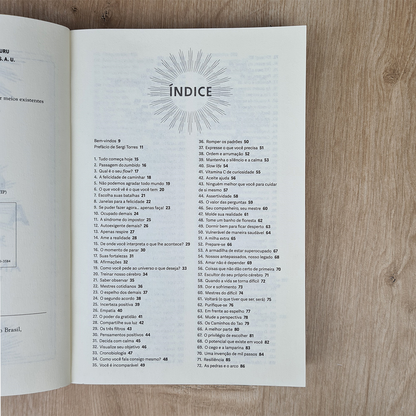 URU
S. A. U.
meios existentes
Brasil,
ÍNDICE
Bem-vindos 9
Prefácio de Sergi Torres 11
1. Tudo começa hoje 15
2. Passagem do zumbido 16
3. Qual é o seu flow? 17
4. A felicidade de caminhar 18
5. Não podemos agradar todo mundo 19
6. O que você vê é o que você tem 20
7. Escolha suas batalhas 21
8. Janelas para a felicidade 22
9. Se puder fazer agora... apenas faça! 23
10. Ocupado demais 24
11. A síndrome do impostor 25
12. Autoexigente demais? 26
13. Apenas respire 27
14. Ame a realidade 28
15. De onde você interpreta o que lhe acontece? 29
16. O momento de parar 30
17. Suas fortalezas 31
18. Afirmações 32
19. Como você pede ao universo o que deseja? 33
20. Treinar nosso cérebro 34
21. Saber observar 35
22. Mestres cotidianos 36
23. O espelho dos demais 37
24. O segundo acordo 38
25. Incerteza positiva 39
26. Empatia 40
27. O poder da gratidão 41
28. Compartilhe sua luz 42
29. Os três filtros 43
30. Pensamentos positivos 44
31. Decida com calma 45
32. Visualize seu objetivo 46
33. Cronobiologia 47
34. Como você fala consigo mesmo? 48
35. Você é incomparável 49
36. Romper os padrões 50
37. Expresse o que você precisa 51
38. Ordem e arrumação 52
39. Mantenha o silêncio e a calma 53
40. Slow life 54
41. Vitamina C de curiosidade 55
42. Aceite ajuda 56
43. Ninguém melhor que você para cuidar
de si mesmo 57
44. Assertividade 58
45. O valor das perguntas 59
46. Seu companheiro, seu mestre 60
47. Molde sua realidade 61
48. Tome um banho de floresta 62
49. Dormir bem para ficar desperto 63
50. Vulnerável de maneira saudável 64
51. A milha extra 65
52. Prepare-se 66
53. A armadilha de estar superocupado 67
54. Nossos antepassados, nosso legado 68
55. Amar não é depender 69
56. Coisas que não dão certo de primeira 70
57. Escultor do seu próprio cérebro 71
58. Quando a vida se torna difícil 72
59. Dor e sofrimento 73
60. Mestres do difícil 74
61. Voltará (o que tiver que ser, será) 75
62. Purifique-se 76
63. Em frente ao espelho 77
64. Mude a perspectiva 78
65. Os Caminhos do Tao 79
66. A melhor parte 80
67. O privilégio de escolher 81
68. O potencial que existe em você 82
69. O cego e a lamparina 83
70. Uma invenção de mil passos 84
71. Resiliência 85
72. As pedras e o arroz 86